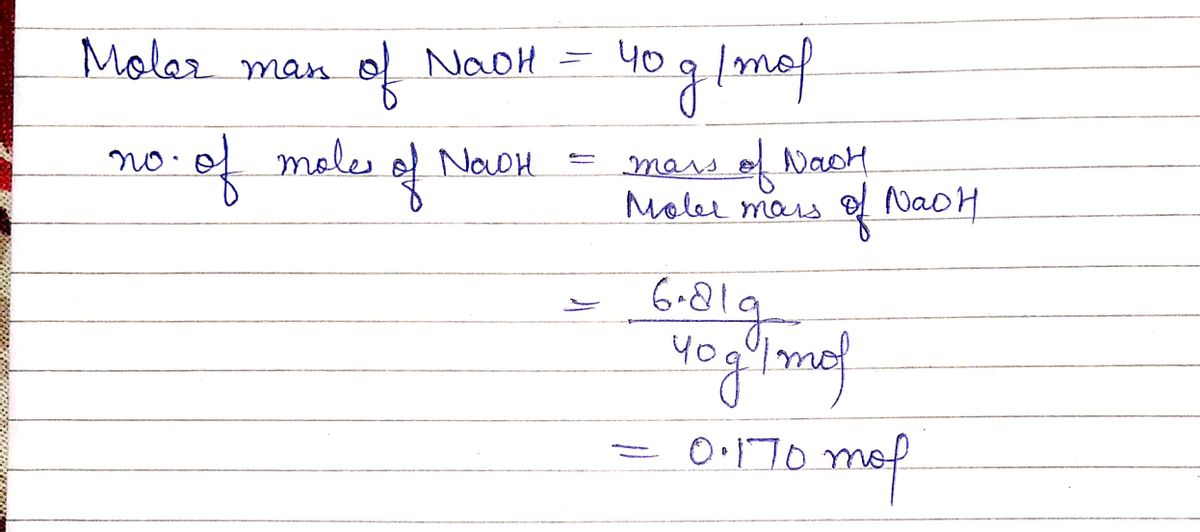 Molar mass of NaOH = 40 g/mol
no. of moles of NaOH = mass of NaOH
Molar mass of NaOH
= 6.81g
40g/mol
= 0.170 mol